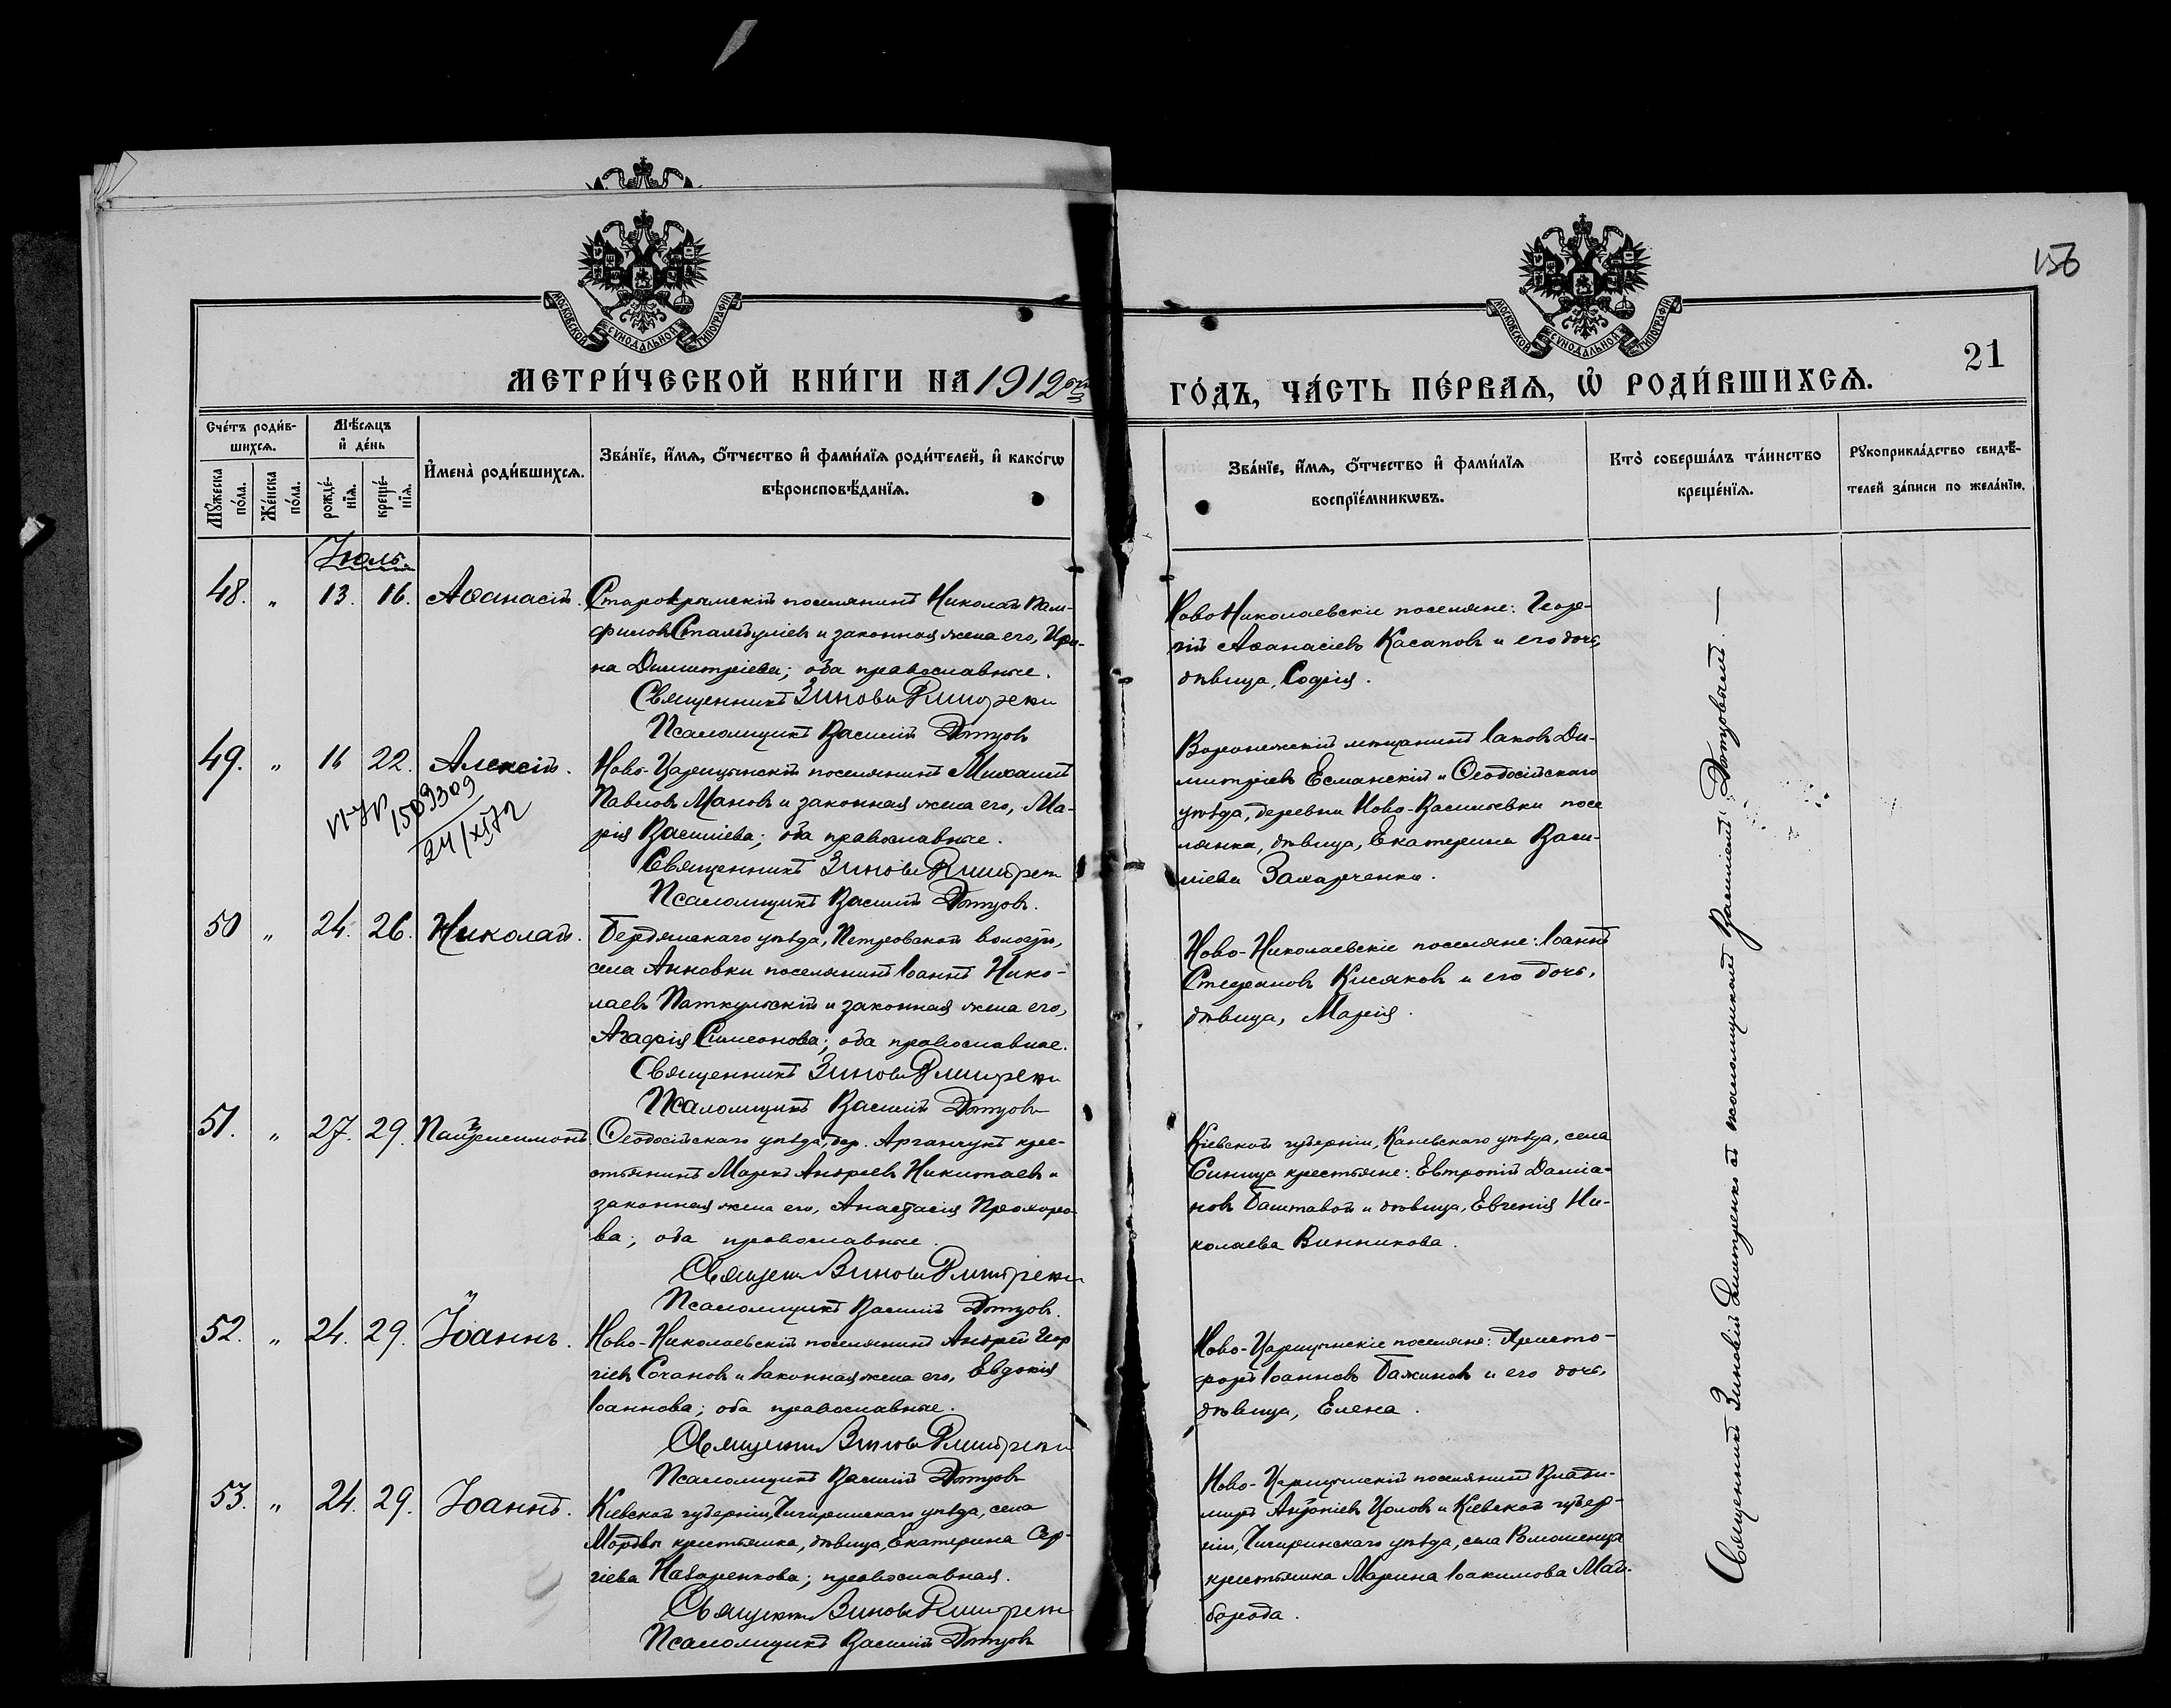 156
МОСКОВСКОЙ СУНОДАЛЬНОЙ ТИПОГРАФІИ
МОСКОВСКОЙ СУНОДАЛЬНОЙ ТИПОГРАФІИ
21
МЕТРИ́ЧЕСКОЙ КНИ́ГИ НА 1912
ГО́ДЪ, ЧА́СТЬ ПЕ́РВАѦ, Ѡ҆ РОДИ́ВШИХСѦ.
Сче́тъ роди́в-
шихсѧ.
Мѣ́сѧцъ
и҆ де́нь
Мꙋ́жеска
по́ла.
Же́нска
по́ла.
рожде́-
нїѧ.
креще́-
нїѧ.
И҆мена̀ роди́вшихсѧ.
Зва́нїе, и҆́мѧ, ѻ҆́тчество и҆ фами́лїѧ роди́телей, и҆ како́гѡ
вѣроисповѣ́данїѧ.
Зва́нїе, и҆́мѧ, ѻ҆́тчество и҆ фами́лїѧ
воспрїе́мникѡвъ.
Кто̀ соверша́лъ та́инство
креще́нїѧ.
Рꙋкоприкла́дство свидѣ́-
телей за́писи по жела́нїю.
Іюль.
48. „ 13. 16. Аѳанасій. Старокрымскій поселянинъ Николай Пам-
филовъ Стамбуліевъ и законная жена его, Ири-
на Димитріева; оба православные.
Священникъ Зиновій Димитренко
Псаломщикъ Василій
Ново-Николаевскіе поселяне: Геор-
гій Аѳанасіевъ Касаповъ и его дочь,
дѣвица, Софія.
49. „ 16 22. Алексій. Ново-Царицынскій поселянинъ Михаилъ
Павловъ Мановъ и законная жена его, Ма-
рія Василіева; оба православные.
1509309
24/XI 72
Священникъ Зиновій Димитренко
Псаломщикъ Василій
Воронежскій мѣщанинъ Іаковъ Ди-
митріевъ Есманскій и Ѳеодосійскаго
уѣзда, деревни Ново-Васильевки посе
лянка, дѣвица, Екатерина Васи-
ліева Захарченко.
50 „ 24. 26. Николай. Бердянскаго уѣзда, Петровской волости,
села Анновки поселянинъ Іоаннъ Нико-
лаевъ Паткульскій и законная жена его,
Агафія Симеонова; оба православные.
Священникъ Зиновій Димитренко
Псаломщикъ Василій
Ново-Николаевскіе поселяне: Іоаннъ
Стефановъ Кисяковъ и его дочь,
дѣвица, Марія.
51. „ 27. 29. Пантелеимонъ Ѳеодосійскаго уѣзда, дер. Арганчукъ крес-
тьянинъ Маркъ Андреевъ Никитаевъ и
законная жена его, Анастасія Прохоро-
ва; оба православные.
Священ. Зиновій Димитренко
Псаломщикъ Василій
Кіевской губерніи, Каневскаго уѣзда, села
Синица крестьяне: Евтропій Даміа-
новъ Баштавой и дѣвица, Евгенія Ни-
колаева Винникова.
52. „ 24. 29. Іоаннъ. Ново-Николаевскій поселянинъ Андрей Геор
гіевъ Сочановъ и законная жена его, Евдокія
Іоаннова; оба православные.
Священ. Зиновій Димитренко
Псаломщикъ Василій
Ново-Царицынскіе поселяне: Христо-
форъ Іоанновъ Бажиновъ и его дочь,
дѣвица, Елена.
53. „ 24. 29. Іоаннъ. Кіевской губерніи, Чигиринскаго уѣзда, села
Мордвы крестьянка, дѣвица, Екатерина Сер-
гіева Назаренкова; православная.
Священ. Зиновій Димитренко
Псаломщикъ Василій
Ново-Царицынскій поселянинъ Влади-
миръ Антоніевъ Цоловъ и Кіевской губер-
ніи, Чигиринскаго уѣзда, села
крестьянка Марина Іоакимова Май-
борода.
Священникъ Зиновій Димитренко съ псаломщикомъ Василіемъ